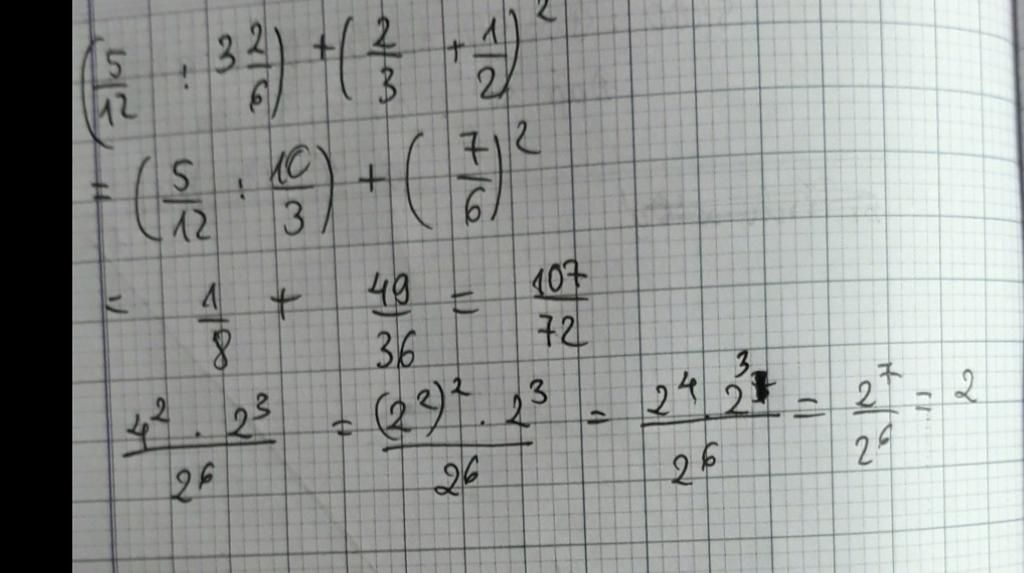 (5/12 : 3 2/6) + (2/3 + 1/2)²
= (5/12 : 10/3) + (7/6)²
= 1/8 + 49/36 = 107/72
4² · 2³ / 2⁶ = (2²)² · 2³ / 2⁶ = 2⁴ · 2³ / 2⁶ = 2⁷ / 2⁶ = 2